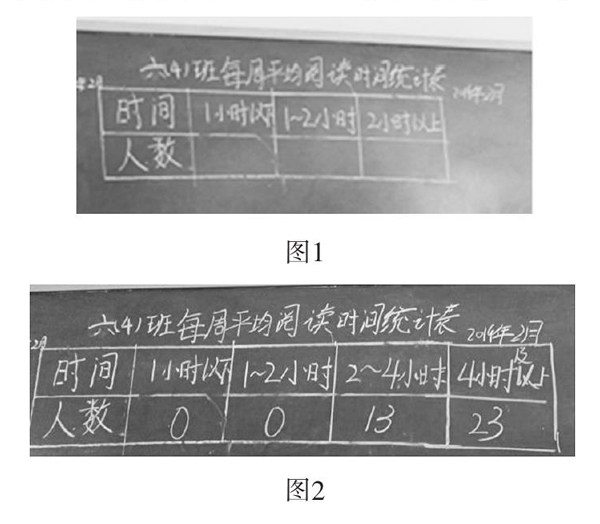 六(4)班每周平均阅读时间统计表
时间 1小时以下 1~2小时 2小时以上
人数
图1
六(4)班每周平均阅读时间统计表 2014年2月
时间 1小时以下 1~2小时 2~4小时 4小时以上
人数 0 0 13 23
图2